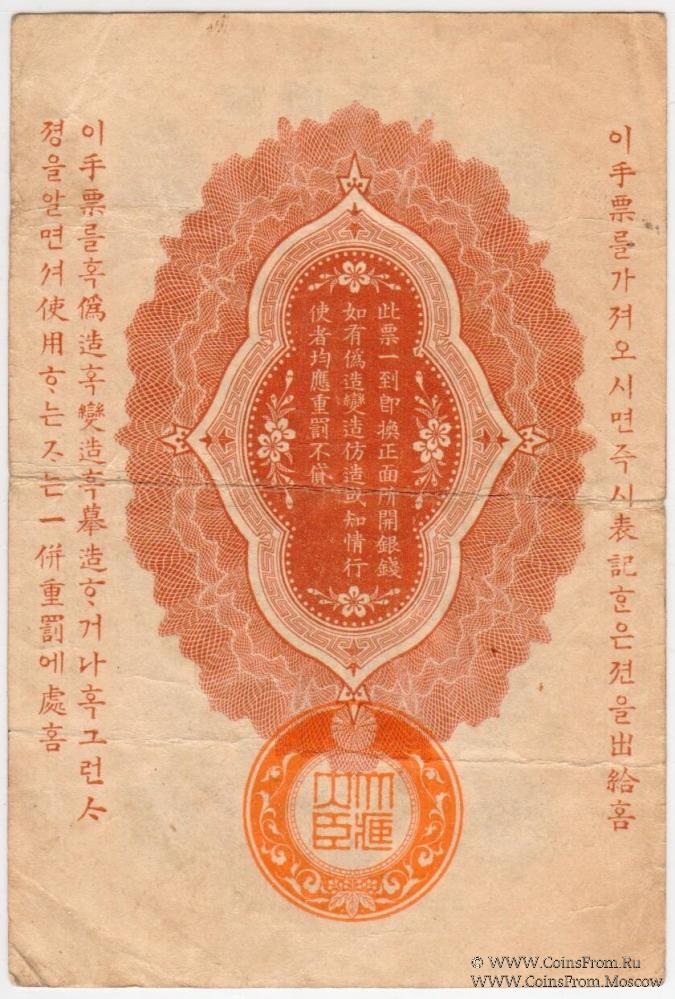 이手票를가져오시면즉시表記ᄒᆞᆫ은젼을出給홈
此票一到卽換正面所開銀錢
如有僞造變造仿造或知情行
使者均應重罰不貸
이手票를혹僞造혹變造혹摹造ᄒᆞ거나혹그런ᄉᆞ
졍을알면셔使用ᄒᆞ는ᄌᆞ는一併重罰에處홈
大藏
大臣
© WWW.CoinsFrom.Ru
WWW.CoinsFrom.Moscow